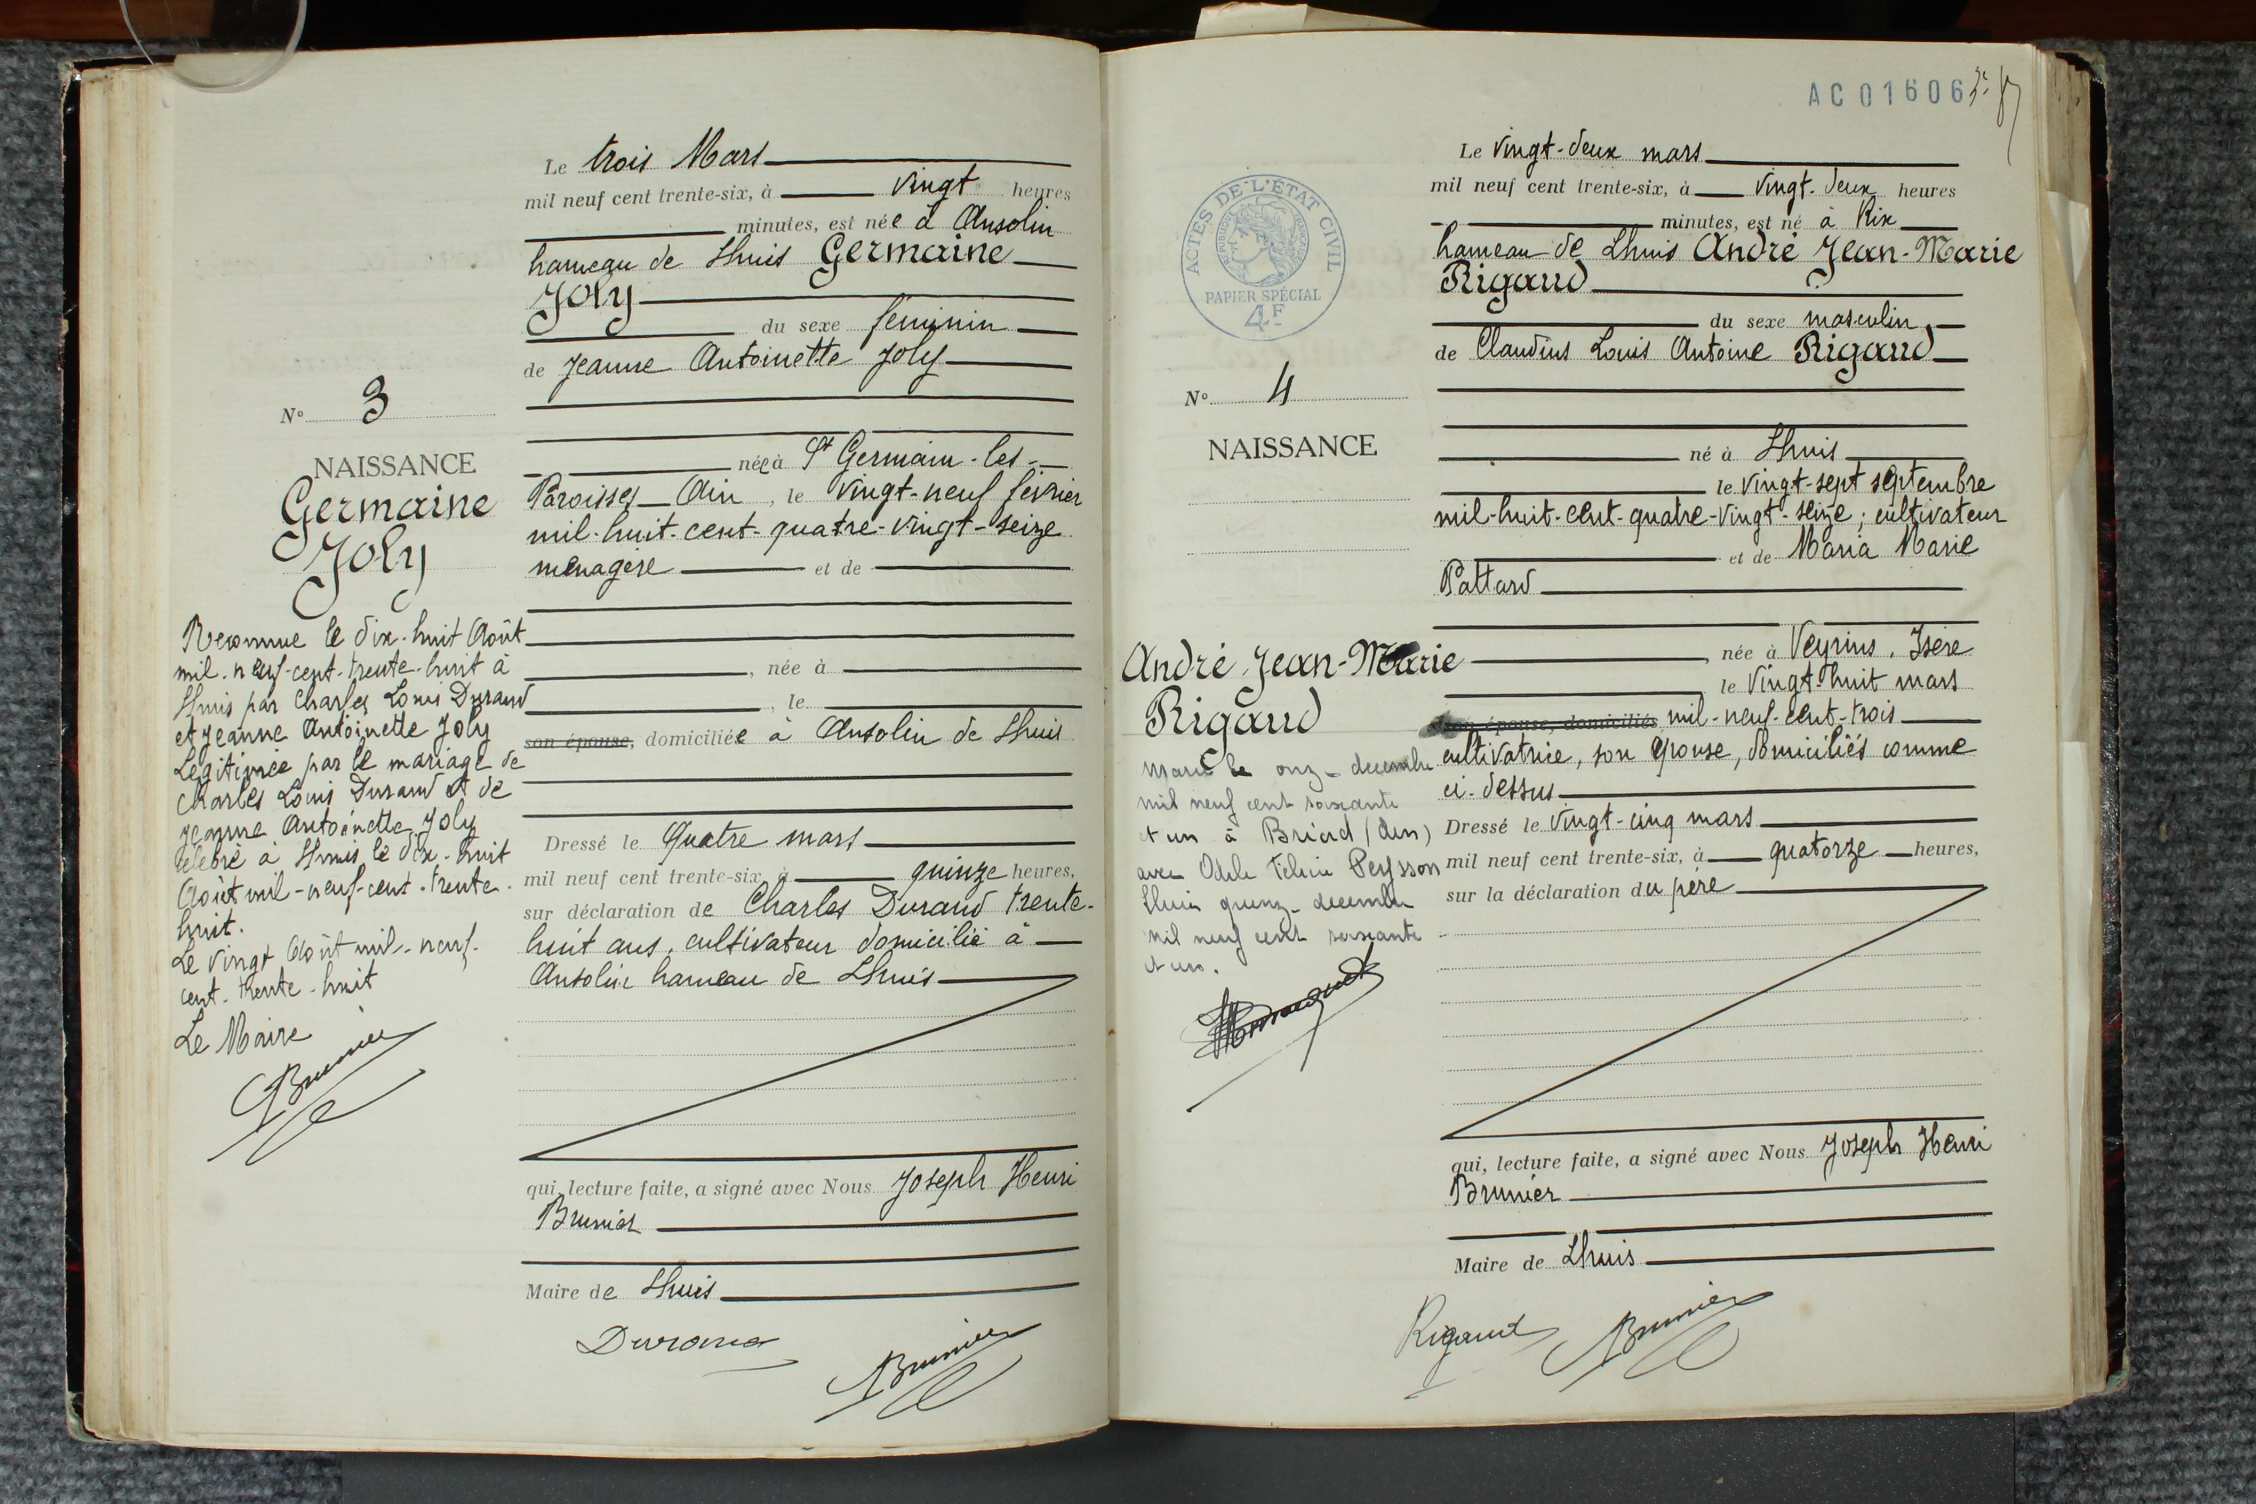 Le trois Mars
mil neuf cent trente-six, à vingt heures
minutes, est née à Ansolin
hameau de Lhuis Germaine
Joly
du sexe féminin
de Jeanne Antoinette Joly
née à St Germain-les-
Paroisses Ain, le vingt-neuf février
mil-huit-cent-quatre-vingt-seize
ménagère et de
, née à
, le
son épouse, domiciliée à Ansolin de Lhuis
Dressé le Quatre mars
mil neuf cent trente-six, à quinze heures,
sur déclaration de Charles Durand trente-
huit ans, cultivateur domicilié à
Ansolin hameau de Lhuis
qui, lecture faite, a signé avec Nous Joseph Henri
Brunier
Maire de Lhuis
Durand
Brunier
N° 3
NAISSANCE
Germaine
Joly
Reconnue le dix-huit Août
mil-neuf-cent-trente-huit à
Lhuis par Charles Louis Durand
et Jeanne Antoinette Joly
Légitimée par le mariage de
Charles Louis Durand et de
Jeanne Antoinette Joly
célébré à Lhuis le dix-huit
Août mil-neuf-cent-trente-
huit.
Le vingt Août mil-neuf-
cent-trente-huit
Le Maire
Brunier
AC01606
ACTES DE L'ÉTAT CIVIL
PAPIER SPÉCIAL
4F
Le vingt-deux mars
mil neuf cent trente-six, à vingt-deux heures
minutes, est né à Rix
hameau de Lhuis André Jean-Marie
Rigaud
du sexe masculin
de Claudius Louis Antoine Rigaud
né à Lhuis
le vingt-sept septembre
mil-huit-cent-quatre-vingt-seize; cultivateur
et de Maria Marie
Pattard
née à Veyrins. Isère
le vingt-huit mars
son épouse, domiciliés mil-neuf-cent-trois
cultivatrice, son épouse, domiciliés comme
ci-dessus
Dressé le vingt-cinq mars
mil neuf cent trente-six, à quatorze heures,
sur la déclaration du père
qui, lecture faite, a signé avec Nous Joseph Henri
Brunier
Maire de Lhuis
Rigaud
Brunier
N° 4
NAISSANCE
André Jean-Marie
Rigaud
Marié le onze décembre
mil neuf cent soixante
et un à (Ain)
avec Odile Peysson
Lhuis quinze décembre
mil neuf cent soixante
et un.